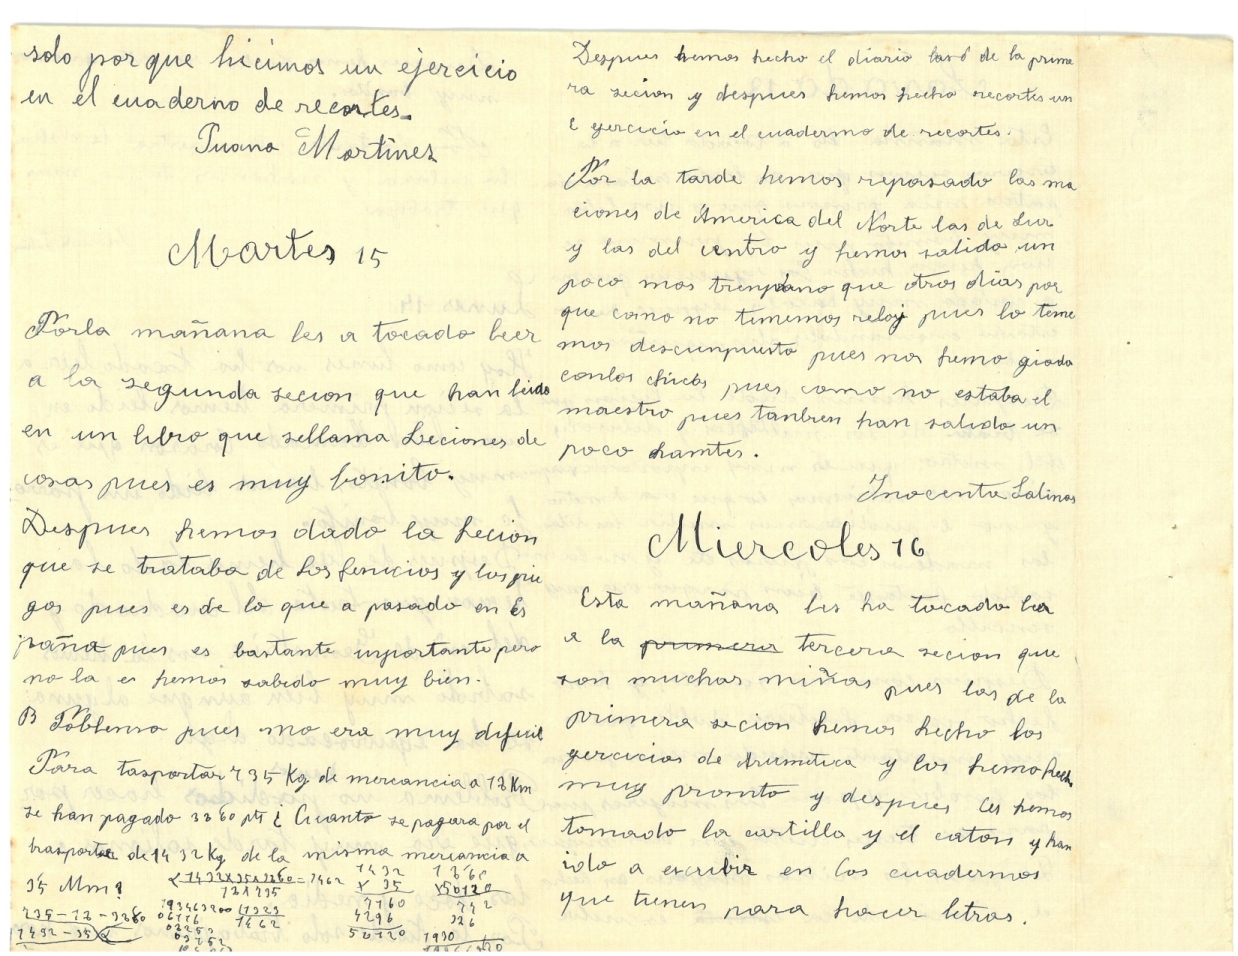 solo por que hicimos un ejercicio
en el cuaderno de recortes.
Puana Martines
Martes 15
Porla mañana les a tocado leer
a la segunda secion que han leido
en un libro que sellama Leciones de
cosas pues es muy bonito.
Despues hemos dado la Lecion
que se trataba de Los fenicios y los grie
gos pues es de lo que a pasado en Es
paña pues es bastante importante pero
no la es hemos sabido muy bien.
Poblema pues mo era muy dificil
Para tasportar 735 Kg de mercancia a 12 Km
se han pagado 3260 pts ¿ Cuanto se pagara por el
trasporte de 1432 Kg de la misma mercancia a
35 Mm?
735-12-3260
1432-35
1432X35X3260=7462
1432
X 35
7160
4296
50120
Despues hemos hecho el diario las 6 de la prime
ra secion y despues hemos hecho recortes un
l ejercicio en el cuadermo de recortes.
Por la tarde hemos repasado las na
ciones de America del Norte las de Sur
y las del centro y hemos salido un
poco mas trenpano que otros dias por
que como no tenemos reloj pues lo tene
mos descunpuesto pues nos hemo giado
conlos chicos pues como no estaba el
maestro pues tanbien han salido un
poco hamtes.
Inocenta Salinas
Miercoles 16
Esta mañana les ha tocado lea
a la primera tercera secion que
son muchas niñas pues las de la
primera secion hemos hecho los
gercicios de Arumitica y los hemo hecho
muy pronto y despues les hemos
tomado la cartilla y el caton y han
ido a escribir en los cuadermos
que tienen para hacer letras.